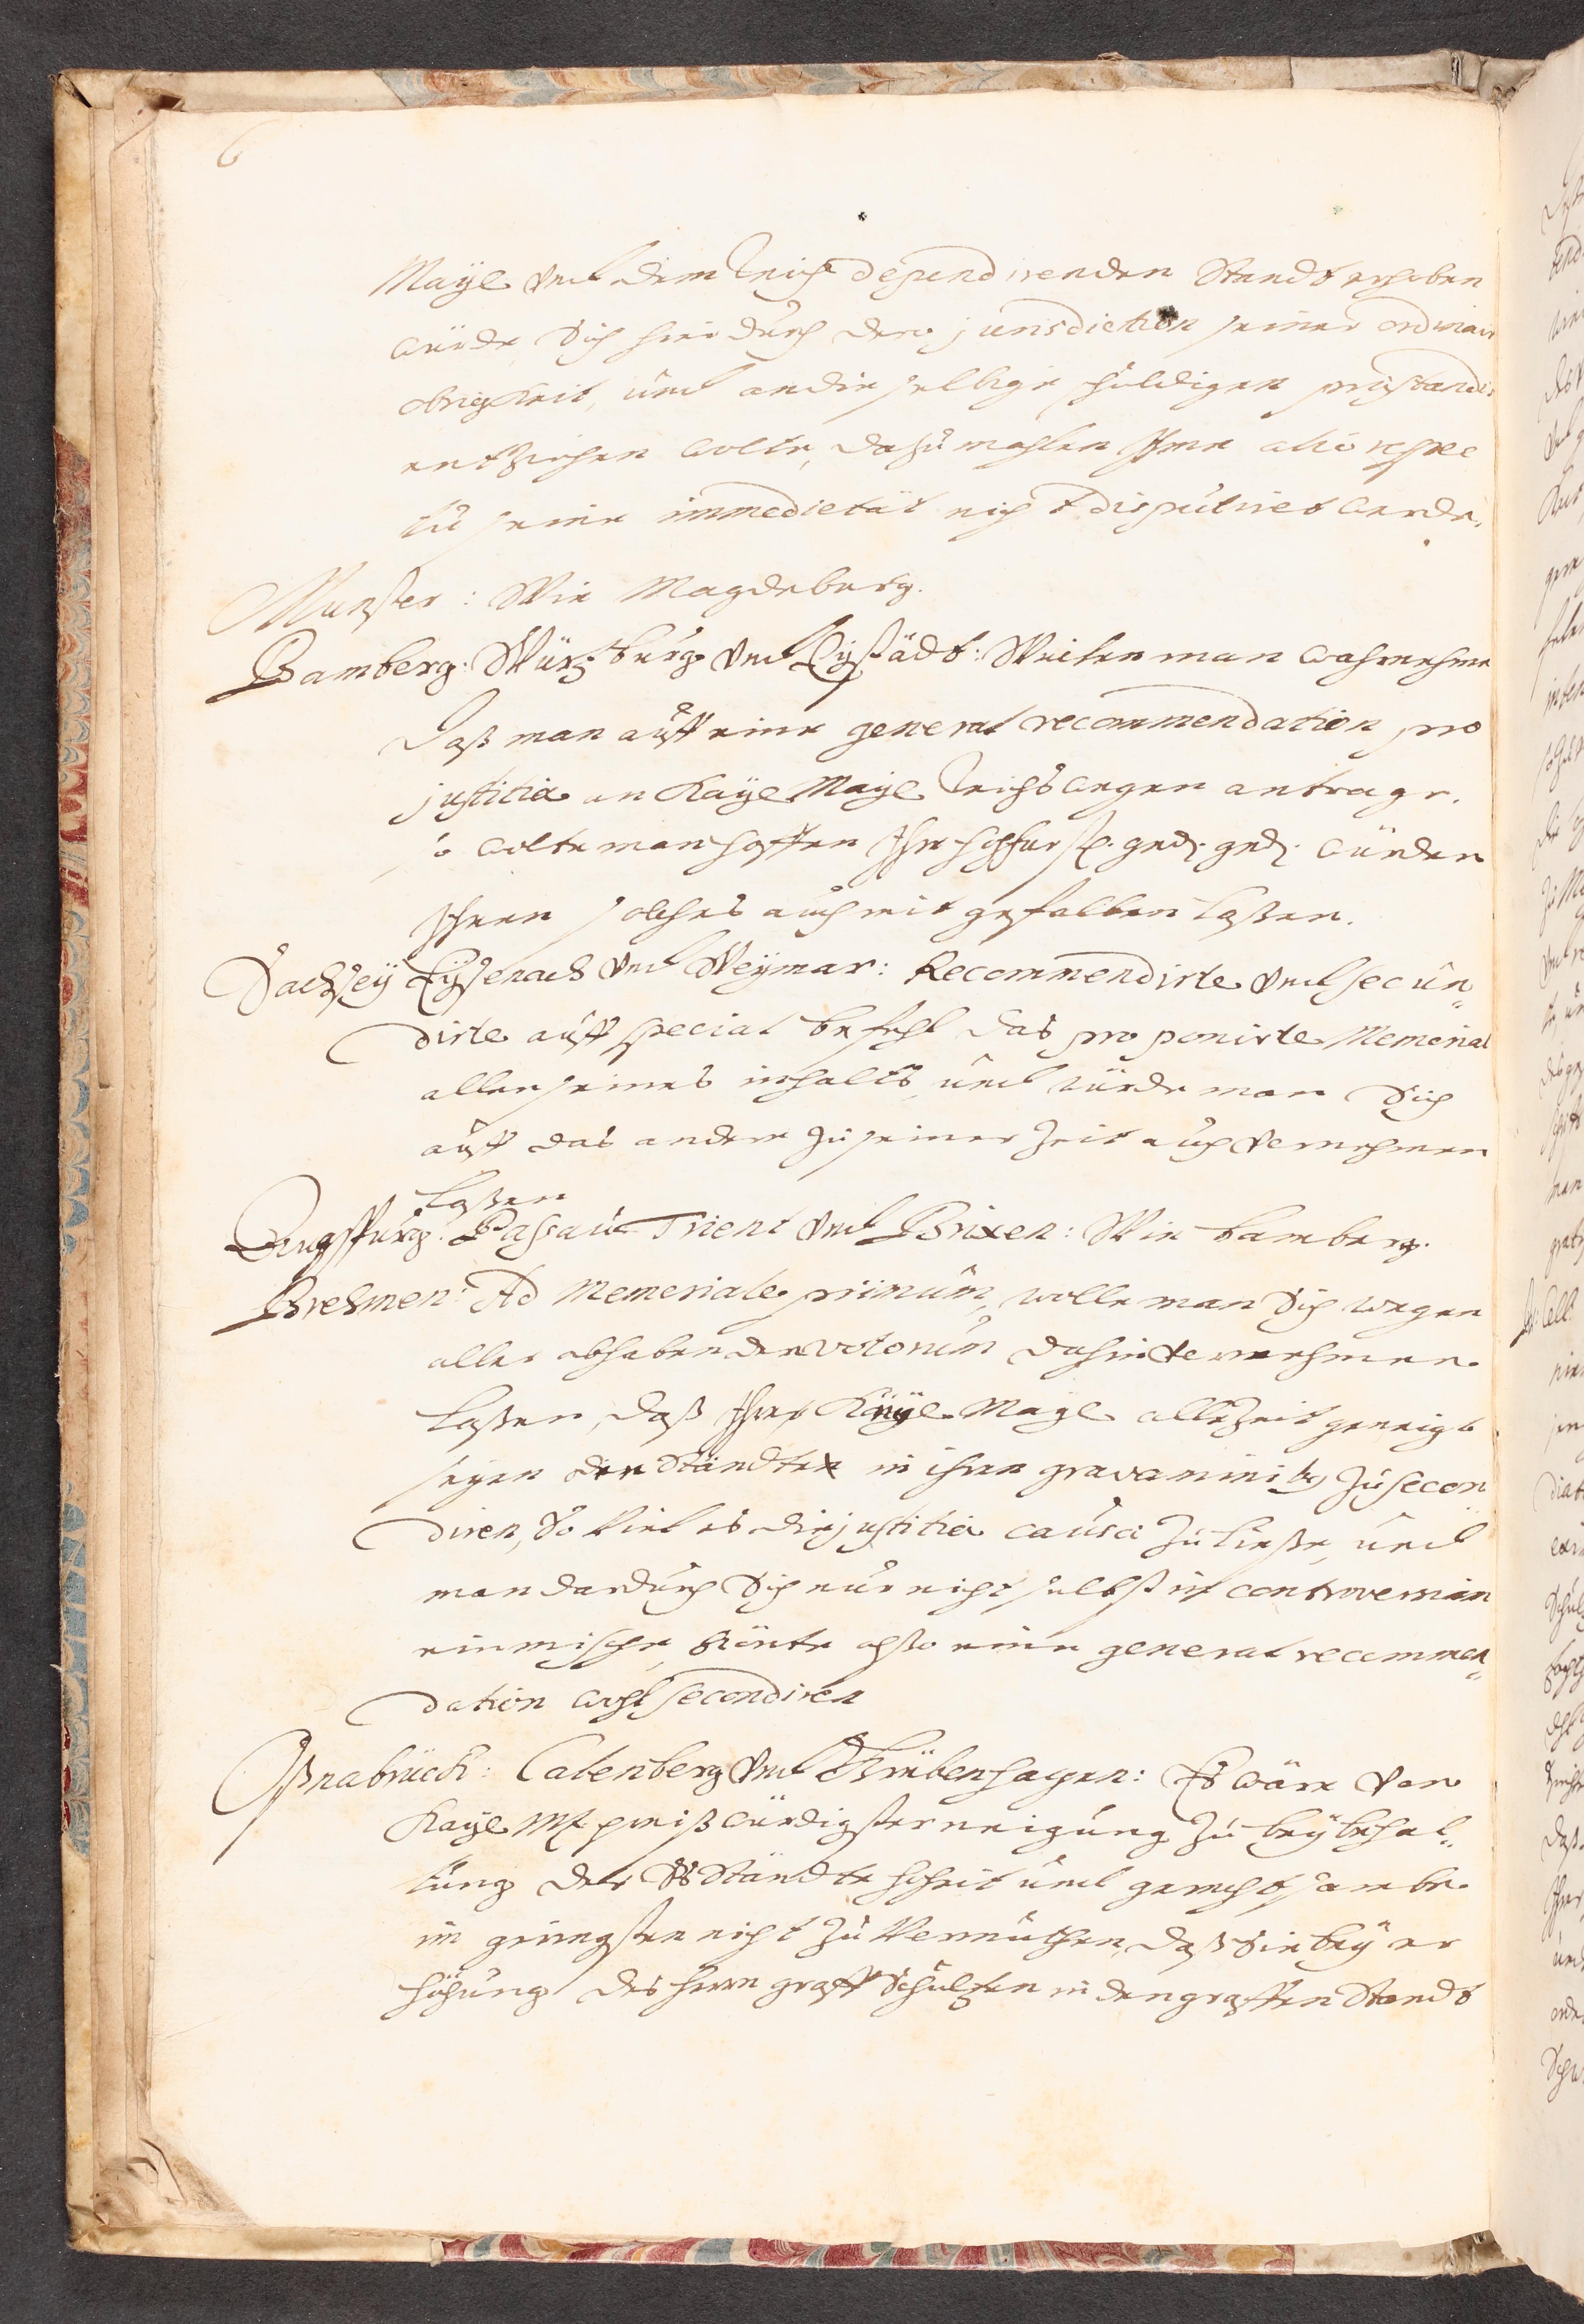 6
Maÿl. Undt dem Reich dependirenden Standt erhoben
würde, Sich hierdurch der jurisdiction seiner ordinari
obrigkeit, undt an die selbige schuldigen præstandis
entziehen wolte, dazumahlen Ihme alio respec
tu seine immedietät nicht disputiret werde.
Munster: Wie Magdeburg.
Bamberg. Würtzburg Undt Eÿstädt: Weilen man wahrnehme
Daß man auff eine general recommendation pro
justitia an Kaÿl. Maÿl. Reichs wegen antrage.
so wolte man hoffen Ihr hochfürstl. gnd. gnd. würden
Ihnen solches auch mit gefallen laßen.
Sachsen Eÿsenach Undt Weÿmar: Recommendirte Undt secun„
dirte auff special befehl das proponirte Memorial
allen seines inhalts, undt würde man Sich
auff das andere zu seiner Zeit auch Vernehmen
laßen
Augspurg. Passau Trient Undt Brixen: Wie bamberg.
Brehmen: Ad Memoriale primum, wolle man Sich wegen
aller abhabenden votorum dahin Vernehmen
laßen, daß Ihre Kaÿl. Maÿl. allezeit geneigt
seyen den Ständten in ihren gravaminibus zu secon
diren, So Viel es die justitia causæ zu ließe, undt
man dardurch Sich nur nicht selbst in controversiam
einmische, könte also eine general recommen„
dation wohl secondiren
Oßnabrück: Calenberg Undt Grubenhagen: Es wäre Von
Kaÿl. Mt. preißwürdigster neigung zu beÿbehal„
tung der Ständte hoheit undt gerechtsambe
im geringsten nicht zu Vermuthen, daß Sie beÿ er
höhung des herrn graff Schultzen in den graffen Standt